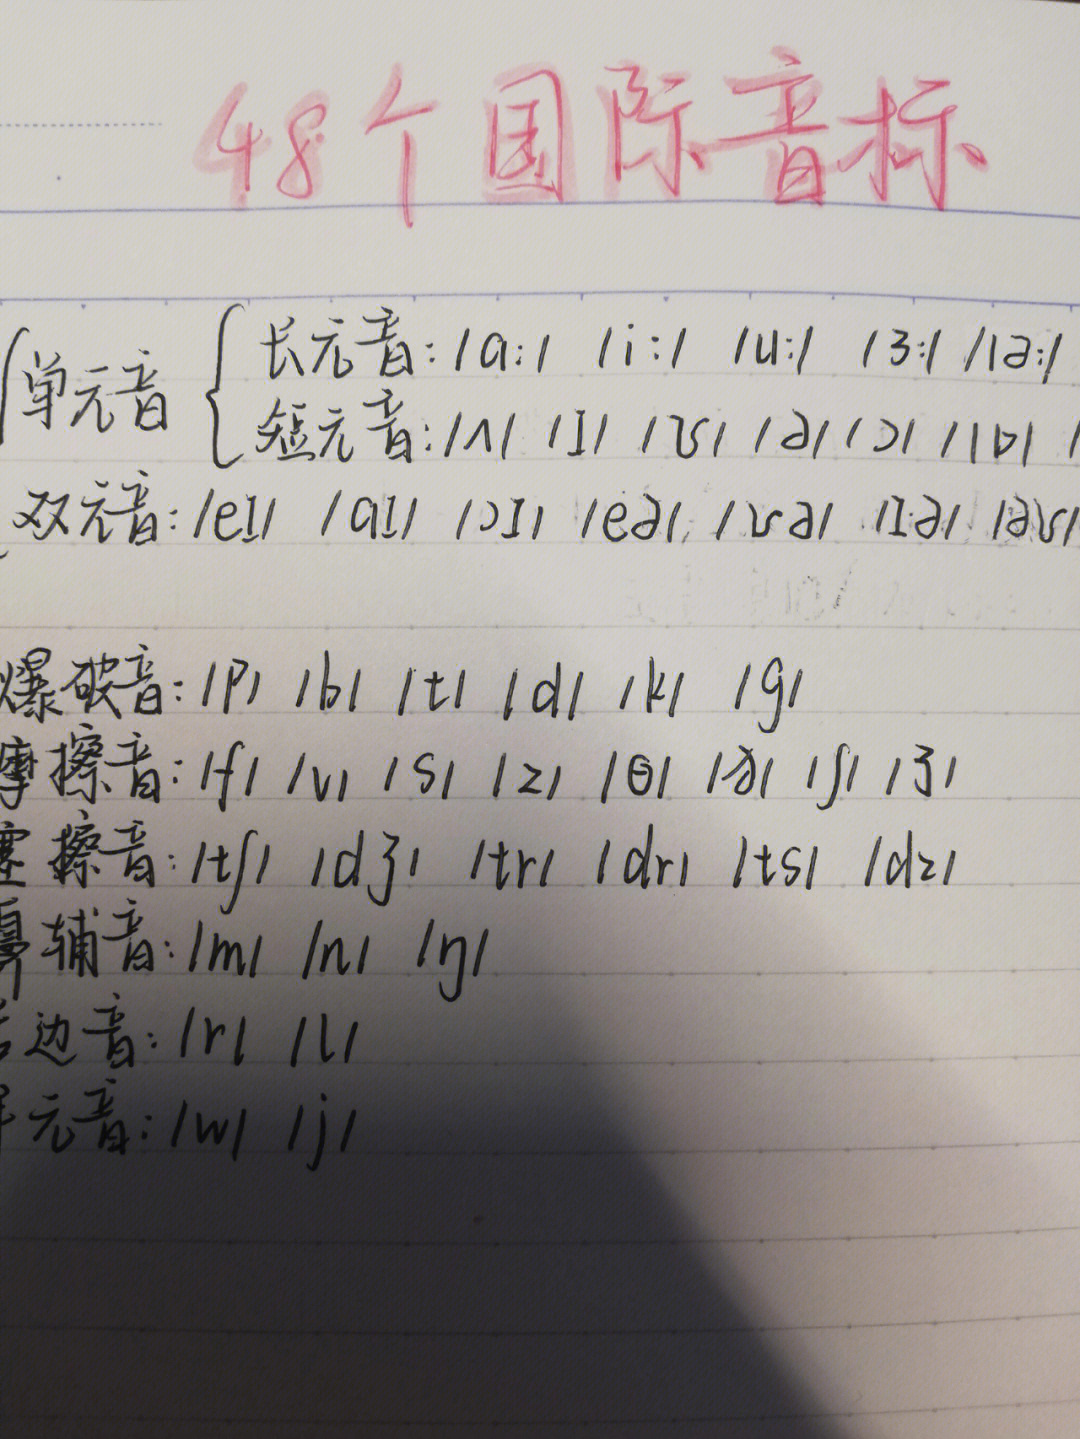 48个国际音标
单元音
长元音: /ɑ:/ /i:/ /u:/ /ɜ:/ //ə:/
短元音: /ʌ/ /ɪ/ /ʊ/ /ə/ /ɔ/ //ɒ/ /
双元音: /eɪ/ /aɪ/ /ɔɪ/ /eə/ /ʊə/ /ɪə/ /əʊ/
爆破音: /p/ /b/ /t/ /d/ /k/ /g/
摩擦音: /f/ /v/ /s/ /z/ /θ/ /ð/ /ʃ/ /ʒ/
塞擦音: /tʃ/ /dʒ/ /tr/ /dr/ /ts/ /dz/
鼻辅音: /m/ /n/ /ŋ/
边音: /r/ /l/
元音: /w/ /j/